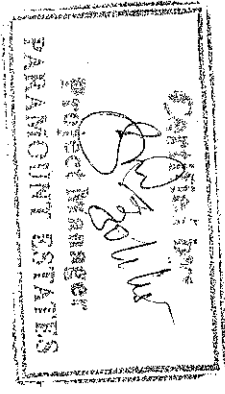 Certified By:
Project Manager
PARAMOUNT ESTATES